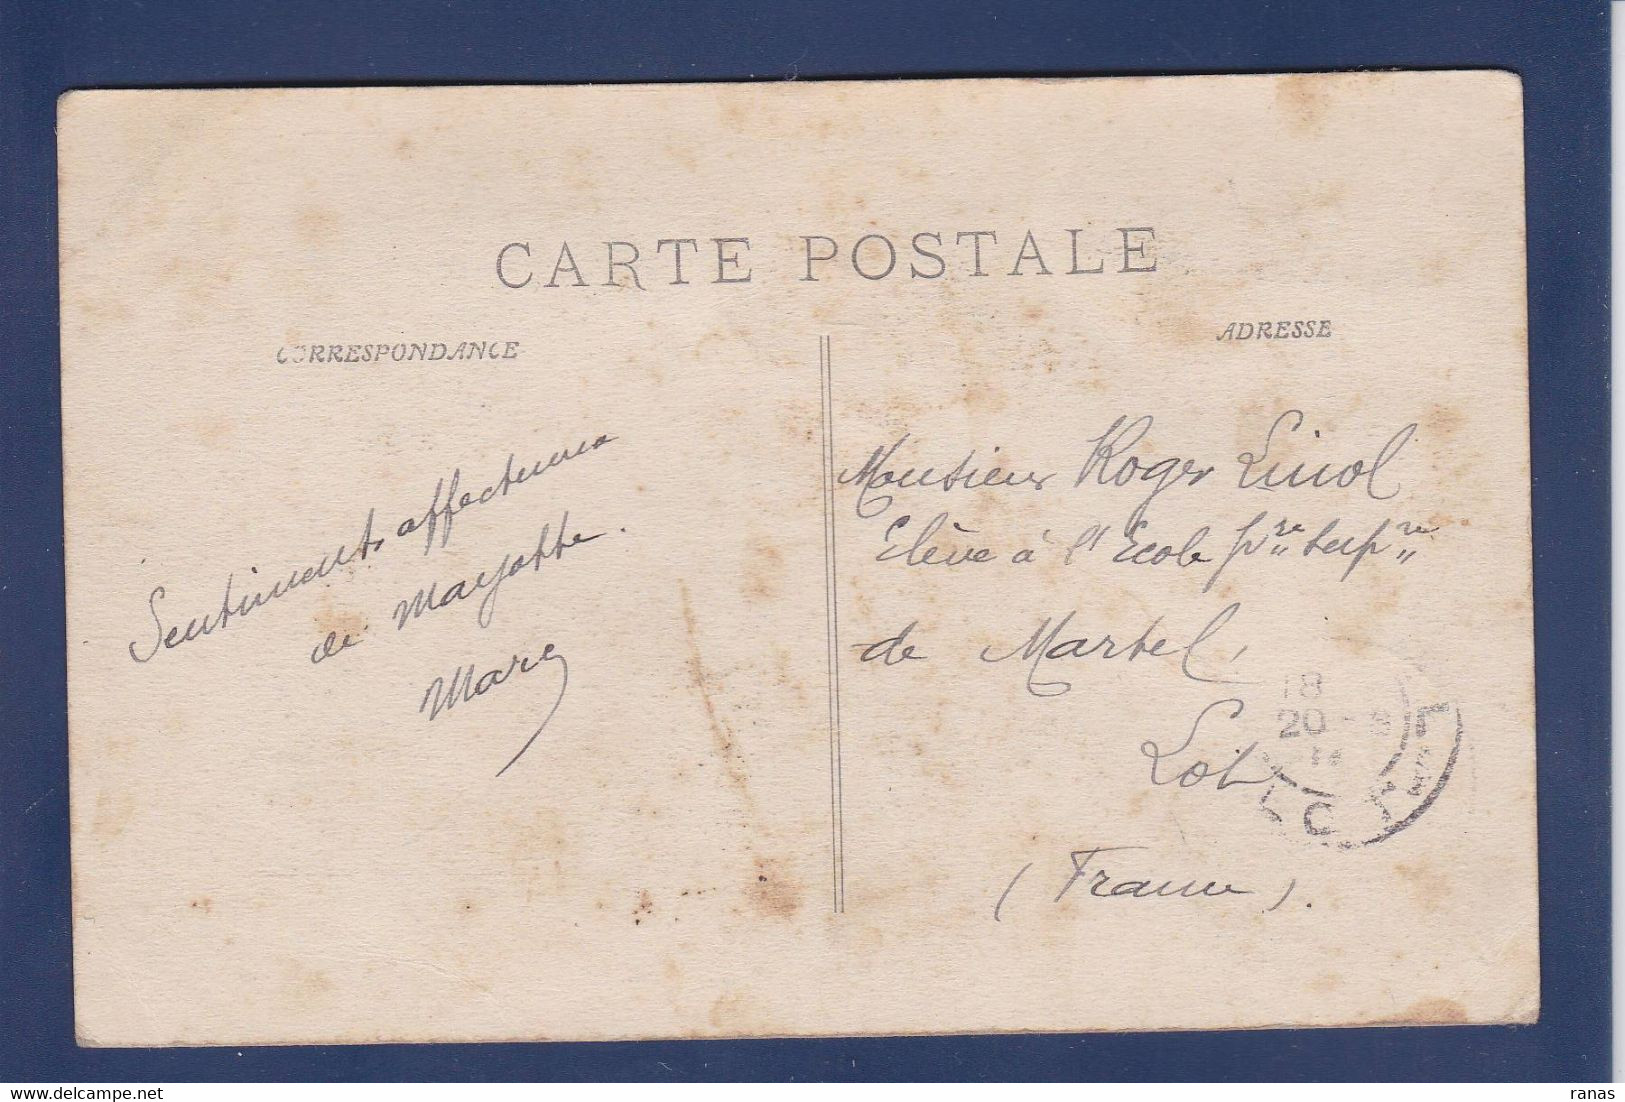 CARTE POSTALE
CORRESPONDANCE
ADRESSE
Sentiments affectueux
de Mayotte.
Monsieur Roger Linol
Elève à l'Ecole pre supre
de Martel,
Lot
(France).
18
20 - 8
11
LOT
delcampe.net
ranas